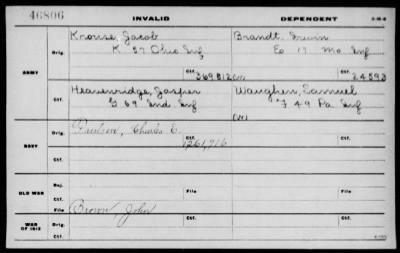 46806 INVALID DEPENDENT
Krouse, Jacob Brandt, Irwin
Orig. K 57 Ohio Inf Co 17 Mo Inf
369812 24593
ARMY
Heavenridge, Jasper Waughen, Samuel
Ctf. G 69 Ind Inf F 49 Pa Inf
Paulson, Charles E.
Orig. 1261,716
NAVY
Ctf. Ctf.
Rej.
OLD WAR
Ctf. File File
Brown, John
WAR OF 1812
Orig. Ctf.
Ctf.